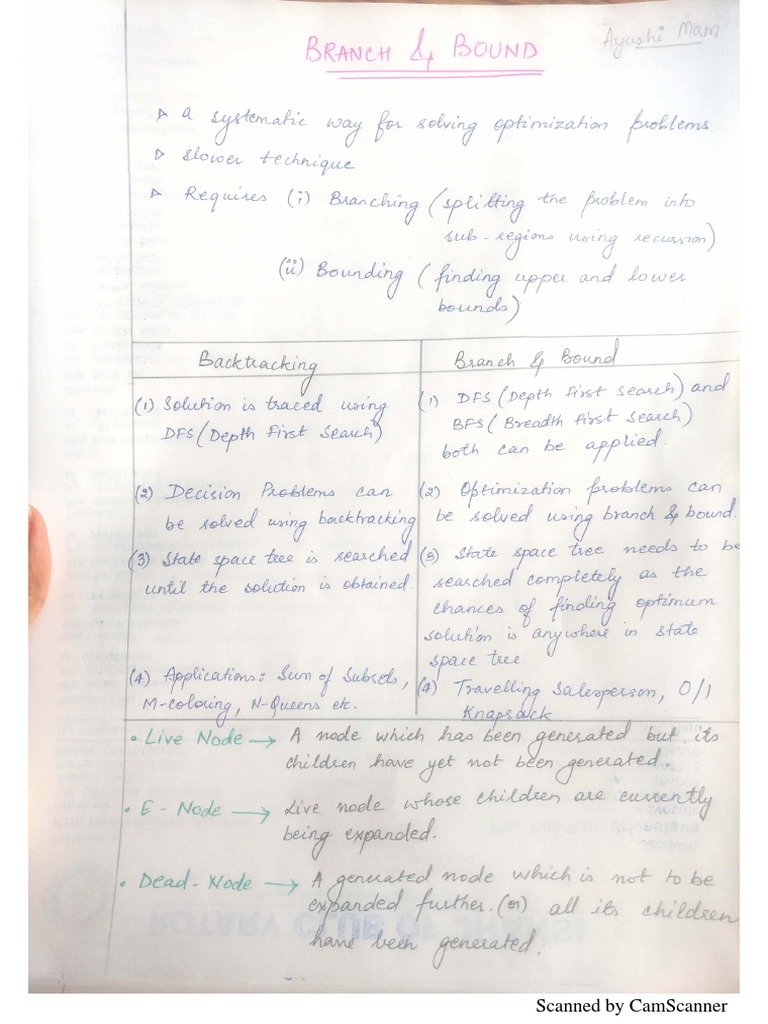 BRANCH & BOUND
Ayushi Mam
▷ a systematic way for solving optimization problems
▷ slower technique
▷ Requires (i) Branching (splitting the problem into
sub-regions using recursion)
(ii) Bounding (finding upper and lower
bounds)
Backtracking
(1) Solution is traced using
DFS (Depth First Search)
(2) Decision Problems can
be solved using backtracking
(3) State space tree is searched
until the solution is obtained.
(4) Applications: Sum of Subsets,
M-coloring, N-Queens etc.
Branch & Bound
(1) DFS (Depth First Search) and
BFS (Breadth First Search)
both can be applied.
(2) Optimization problems can
be solved using branch & bound.
(3) State space tree needs to be
searched completely as the
chances of finding optimum
solution is anywhere in state
space tree
(4) Travelling Salesperson, 0/1
Knapsack
• Live Node → A node which has been generated but its
children have yet not been generated.
• E - Node → Live node whose children are currently
being expanded.
• Dead-Node → A generated node which is not to be
expanded further. (or) all its children
have been generated.
ROTARY CLUB OF JHANSI
Scanned by CamScanner